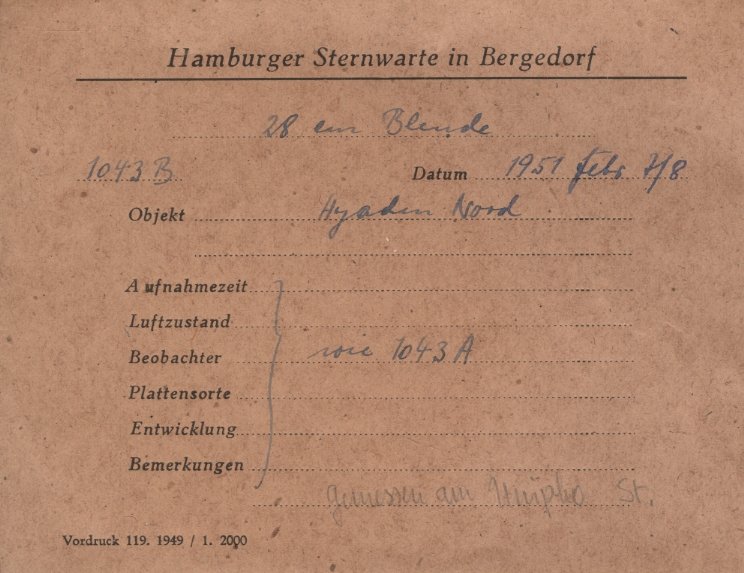 Hamburger Sternwarte in Bergedorf
28 cm Blende
1043 B Datum 1951 Febr 7/8
Objekt Hyaden Nord
Aufnahmezeit
Luftzustand
Beobachter wie 1043 A
Plattensorte
Entwicklung
Bemerkungen
gemessen am St.
Vordruck 119. 1949 / 1. 2000